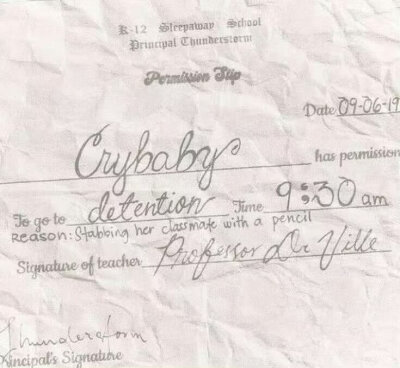 K-12 Sleepaway School
Principal Thunderstorm
Permission Slip
Date 09-06-19
Crybaby has permission
To go to detention Time 9:30 am
Reason: Stabbing her classmate with a pencil
Signature of teacher Professor De Ville
Thunderstorm
Principal's Signature